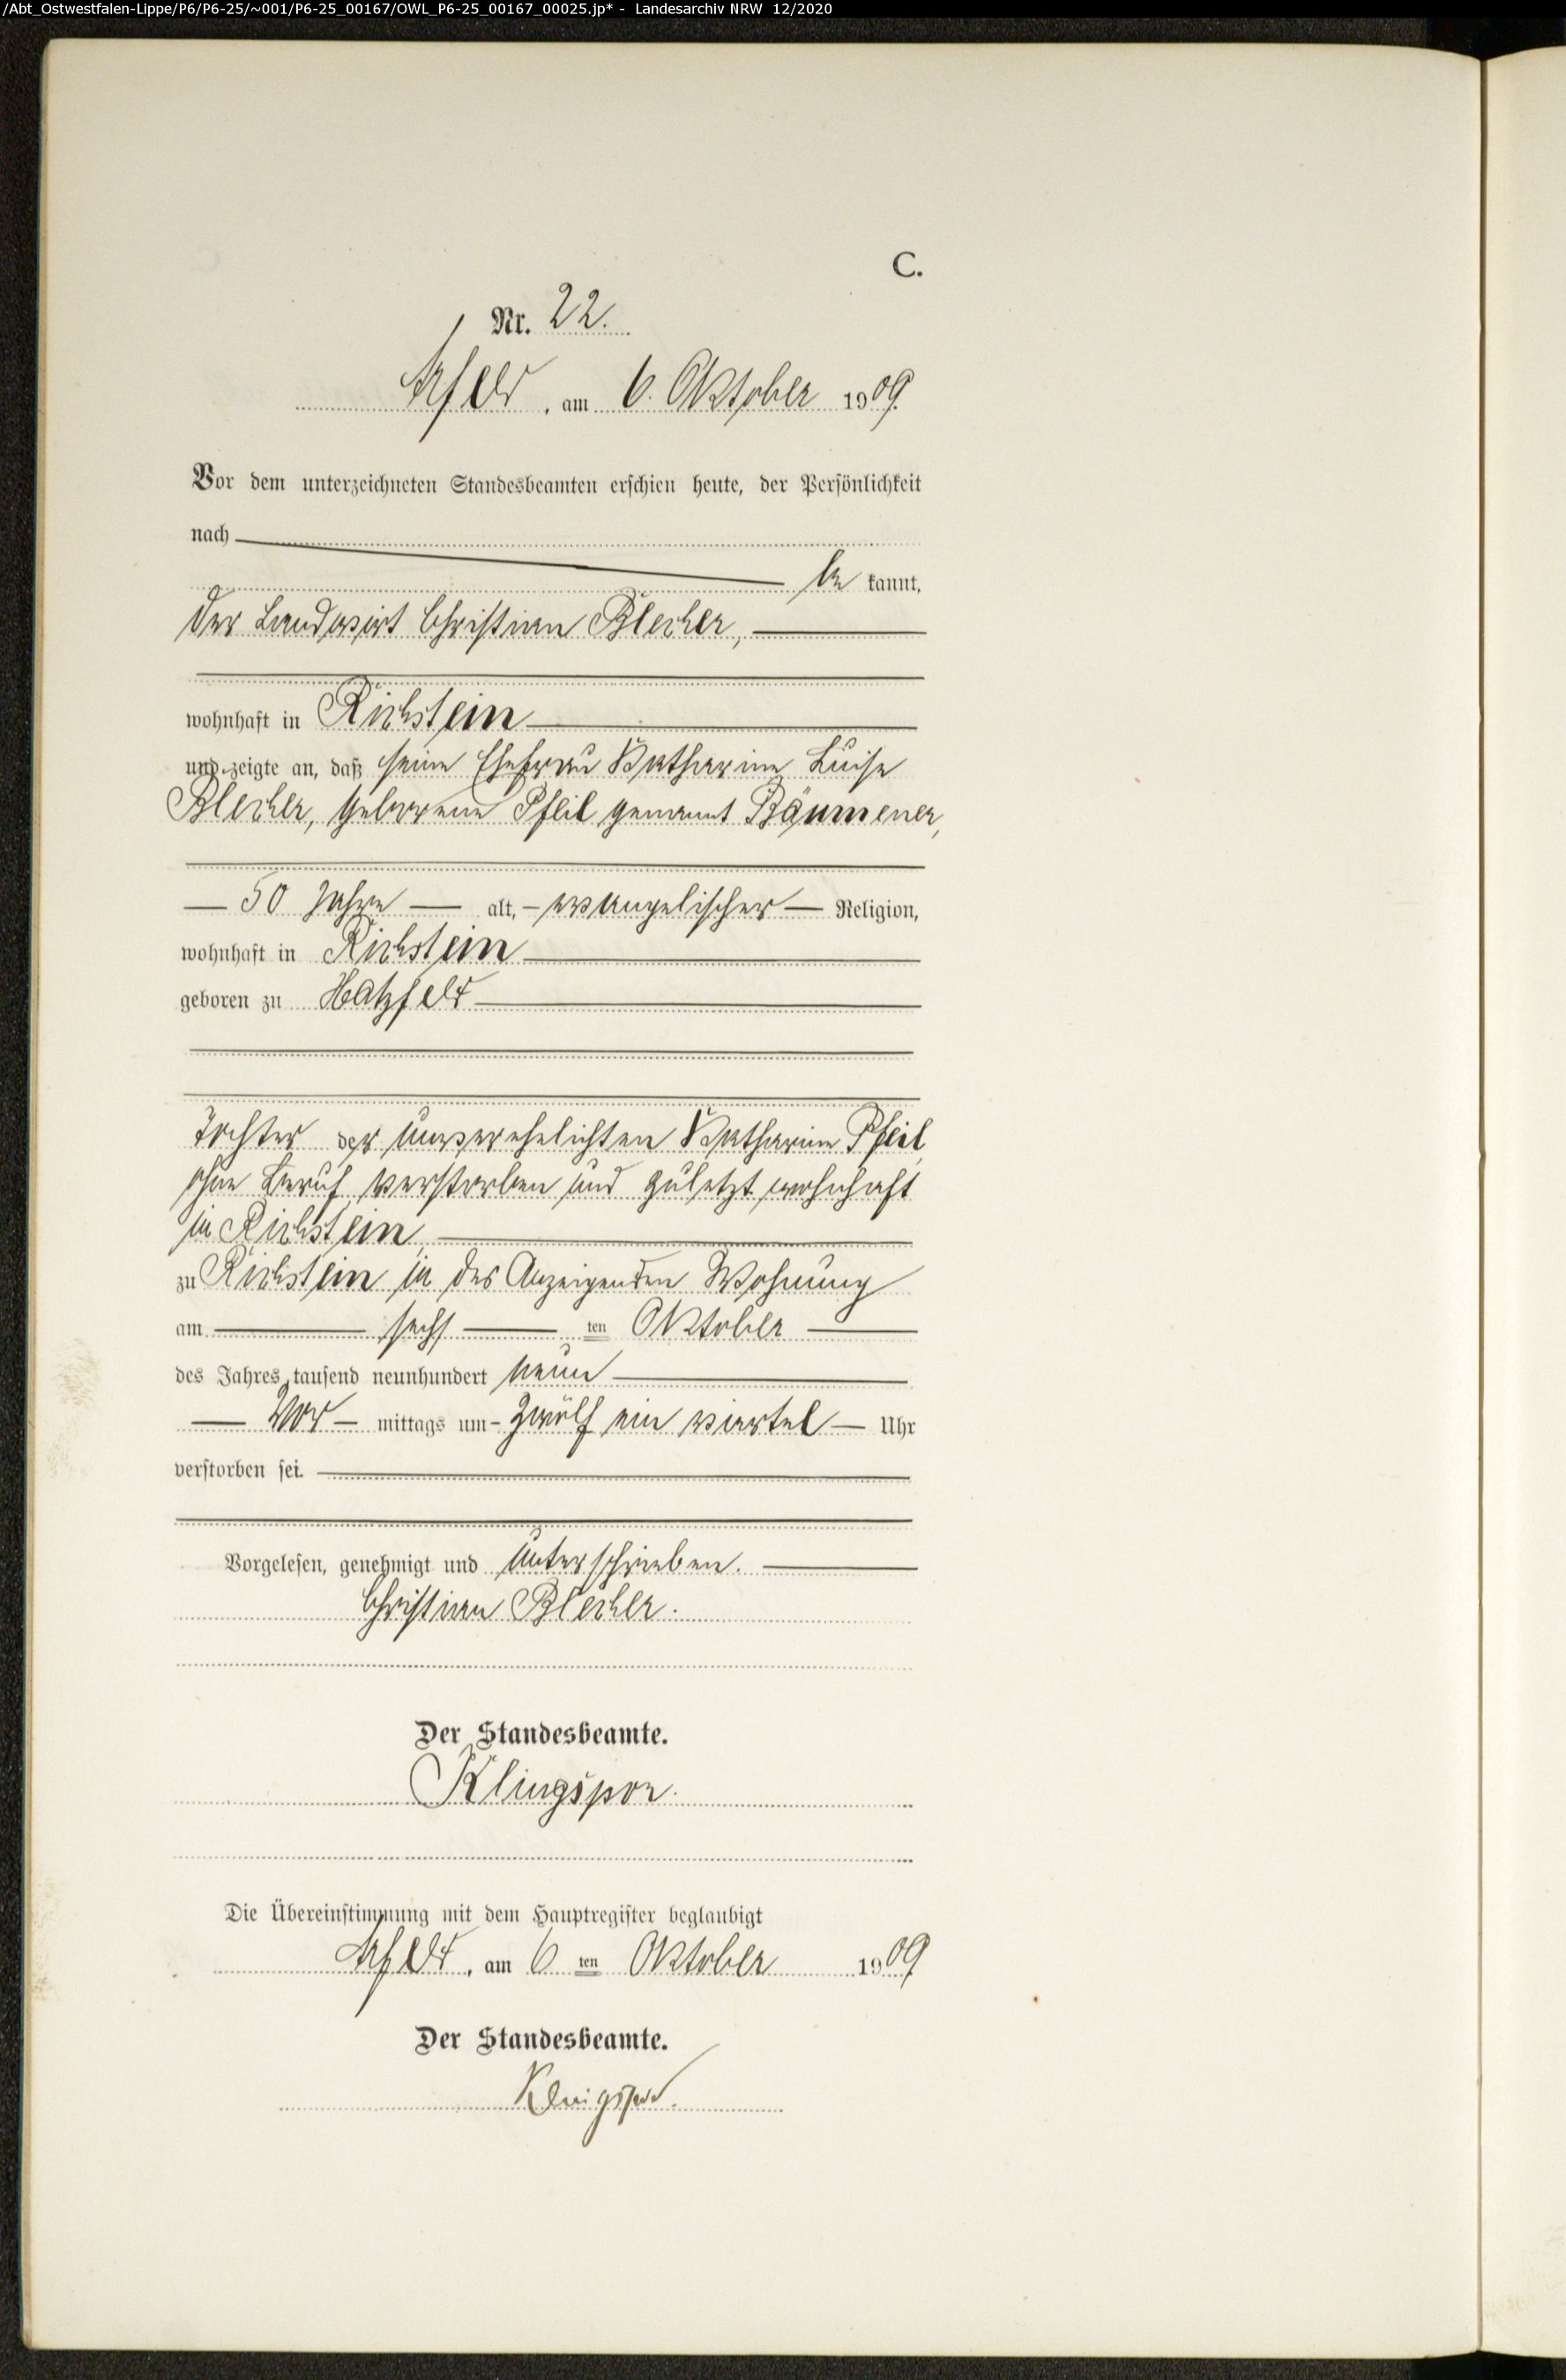 /Abt_Ostwestfalen-Lippe/P6/P6-25/~001/P6-25_00167/OWL_P6-25_00167_00025.jp* - Landesarchiv NRW 12/2020
C.
Nr. 22.
Arfeld, am 6. Oktober 1909.
Vor dem unterzeichneten Standesbeamten erschien heute, der Persönlichkeit
nach
be kannt,
der Landwirt Christian Blecher,
wohnhaft in Richstein
und zeigte an, daß seine Ehefrau Katharine Luise
Blecher, geborene Pfeil genannt Bäumener,
50 Jahre alt, evangelischer Religion,
wohnhaft in Richstein
geboren zu Hatzfeld
Tochter der unverehelichten Katharine Pfeil,
ohne Beruf verstorben und zuletzt wohnhaft
in Richstein,
zu Richstein in des Anzeigenden Wohnung
am sechs ten Oktober
des Jahres tausend neunhundert neun
Vor mittags um zwölf ein viertel Uhr
verstorben sei.
Vorgelesen, genehmigt und unterschrieben.
Christian Blecher.
Der Standesbeamte.
Klingspor.
Die Übereinstimmung mit dem Hauptregister beglaubigt
Arfeld, am 6 ten Oktober 1909
Der Standesbeamte.
Klingspor.